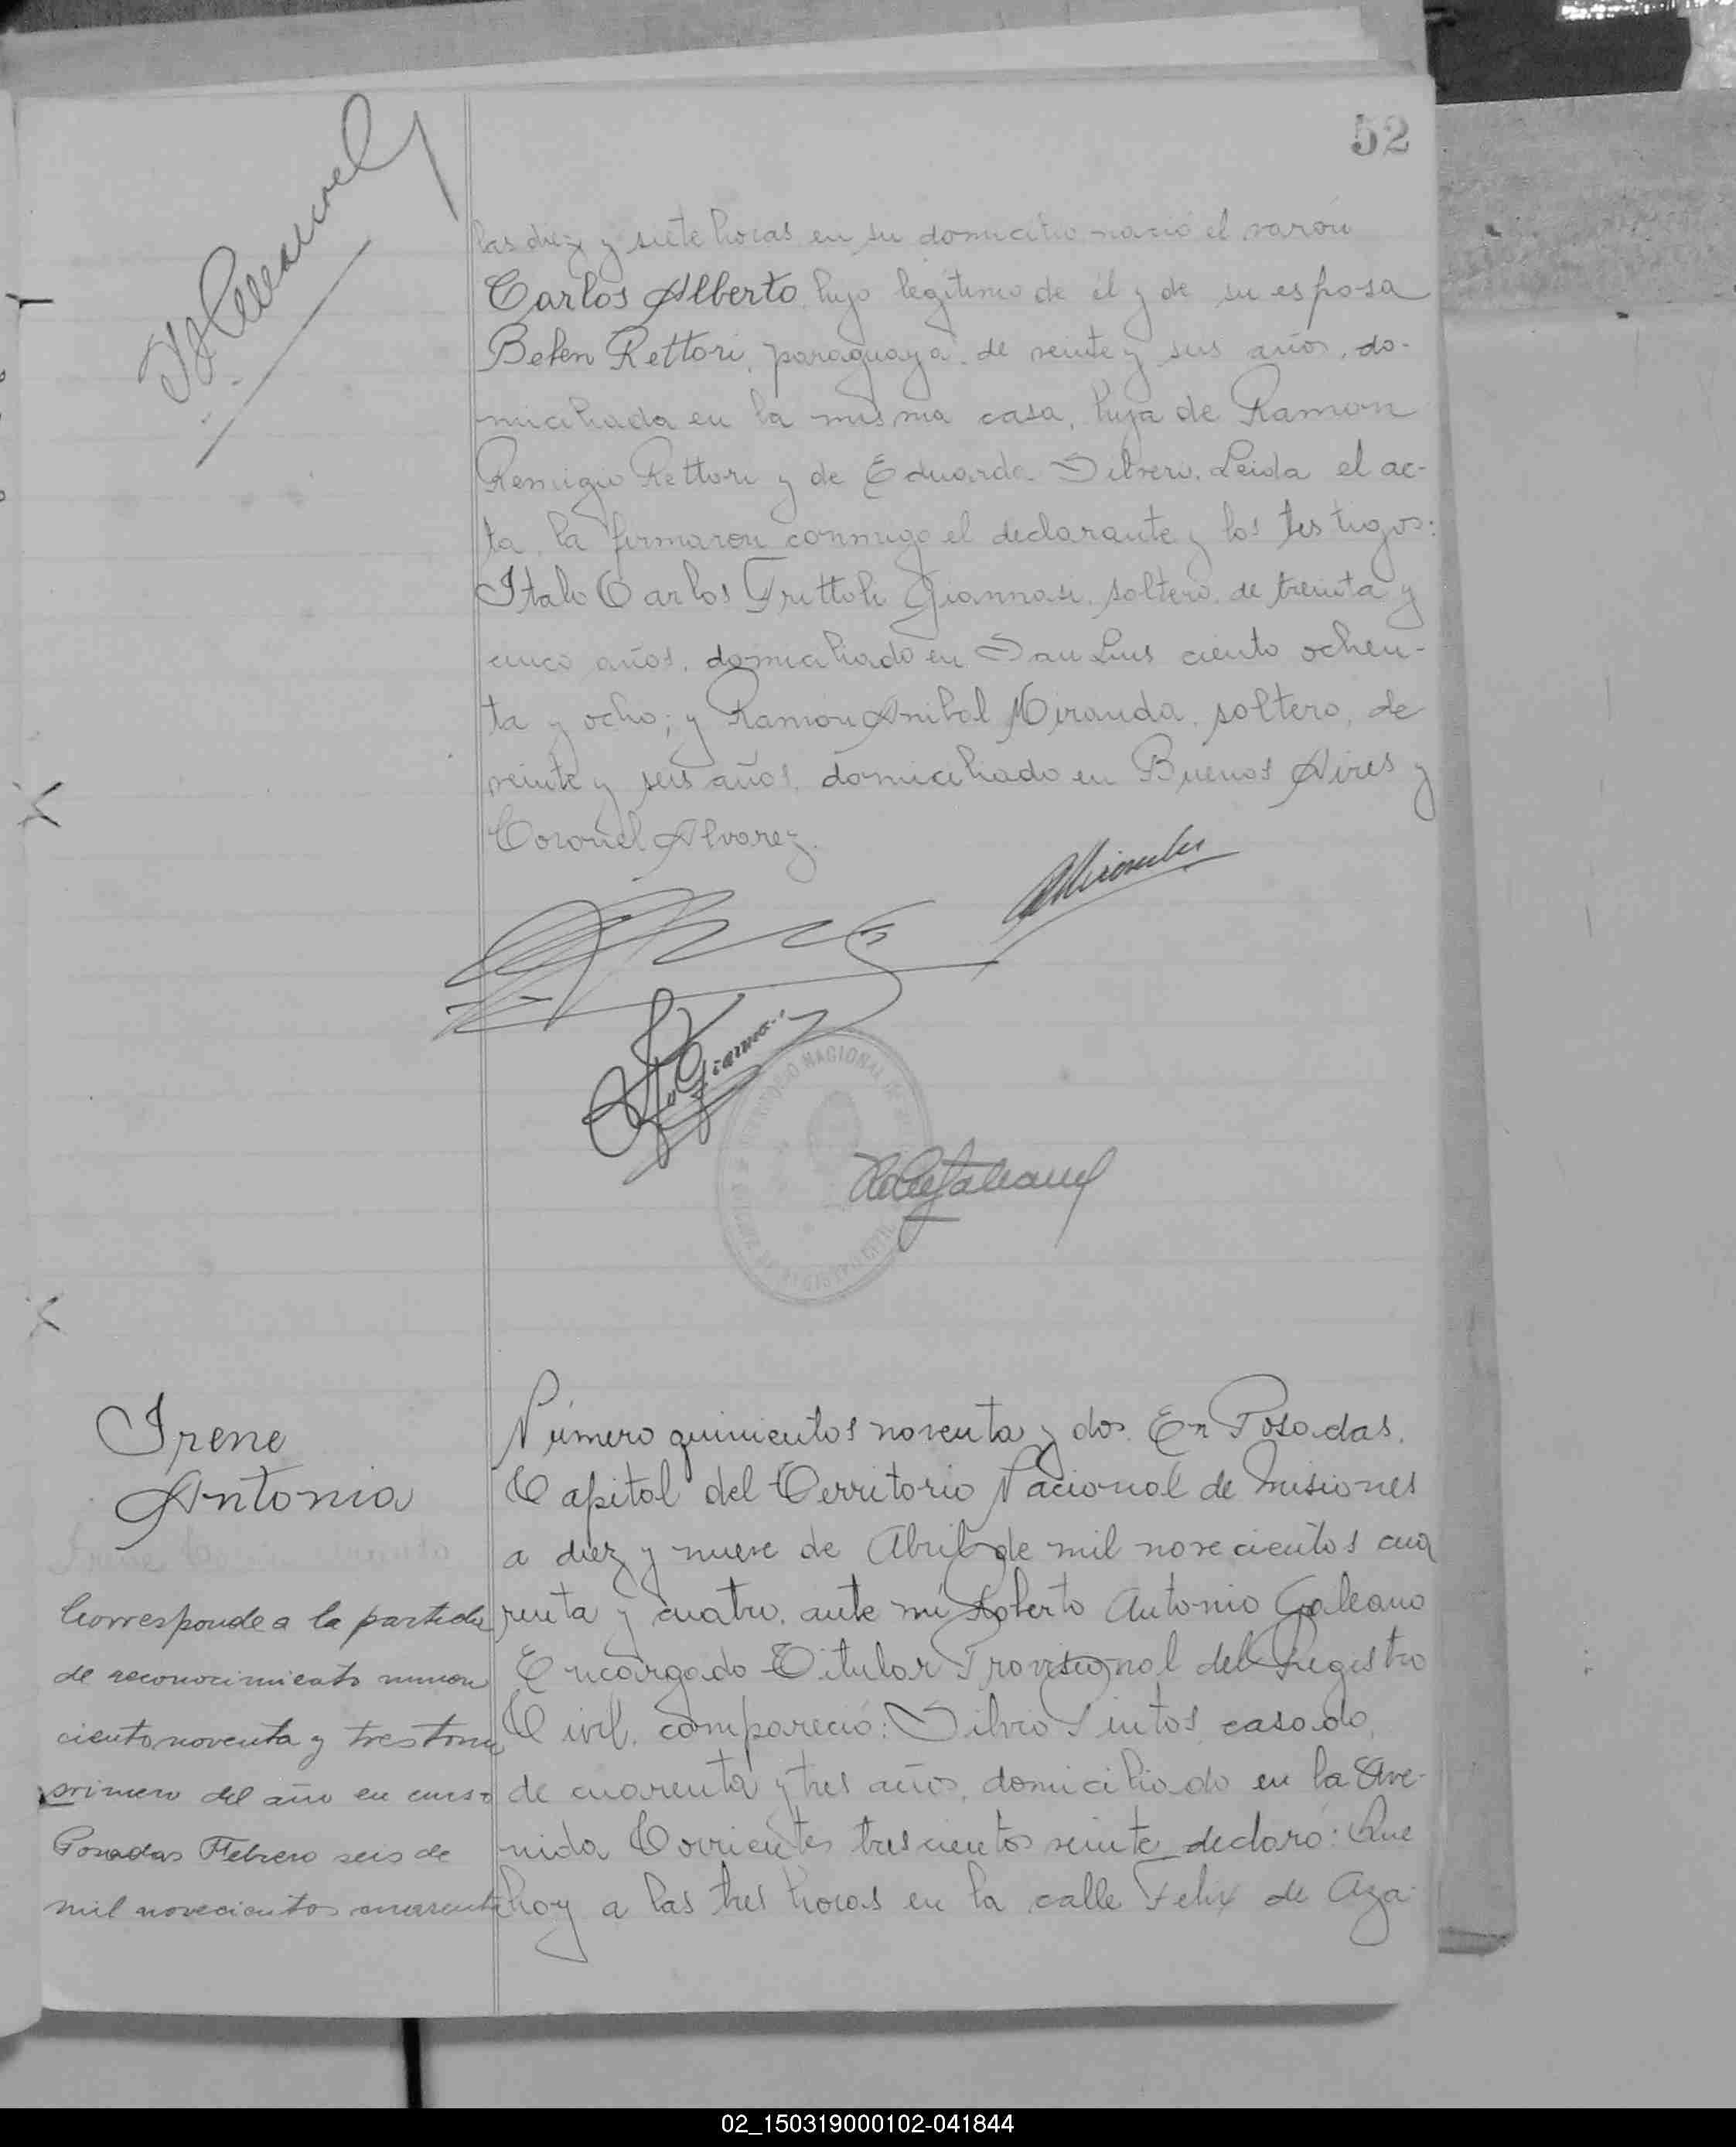 52
las diez y siete horas en su domicilio nació el varón
Carlos Alberto, hijo legitimo de él y de su esposa
Belen Rettori, paraguaya, de veinte y seis años, do-
miciliada en la misma casa, hija de Ramon
Remigio Rettori y de Eduarda Silvero. Leida el ac-
ta, la firmaron conmigo el declarante y los testigos:
Italo Carlos Trittoli Giannasi, soltero, de treinta y
cinco años, domiciliado en San Luis ciento ochen-
ta y ocho; y Ramon Anibal Miranda, soltero, de
veinte y seis años, domiciliado en Buenos Aires y
Coronel Alvarez.
AMiranda
NACIONAL DE
REGISTRO CIVIL
Irene
Antonia
Corresponde a la partida
de reconocimiento numero
ciento noventa y tres tomo
primero del año en curso
Posadas Febrero seis de
mil novecientos cuarenta
Número quinientos noventa y dos. En Posadas,
Capital del Territorio Nacional de Misiones
a diez y nueve de Abril de mil novecientos cua
renta y cuatro, ante mí Roberto Antonio Galeano
Encargado Titular Provisional del Registro
Civil, compareció: Silvio Pintos, casado,
de cuarenta y tres años, domiciliado en la Ave-
nida Corrientes trescientos veinte declaró: Que
hoy a las tres horas en la calle Felix de Aza-
02_150319000102-041844